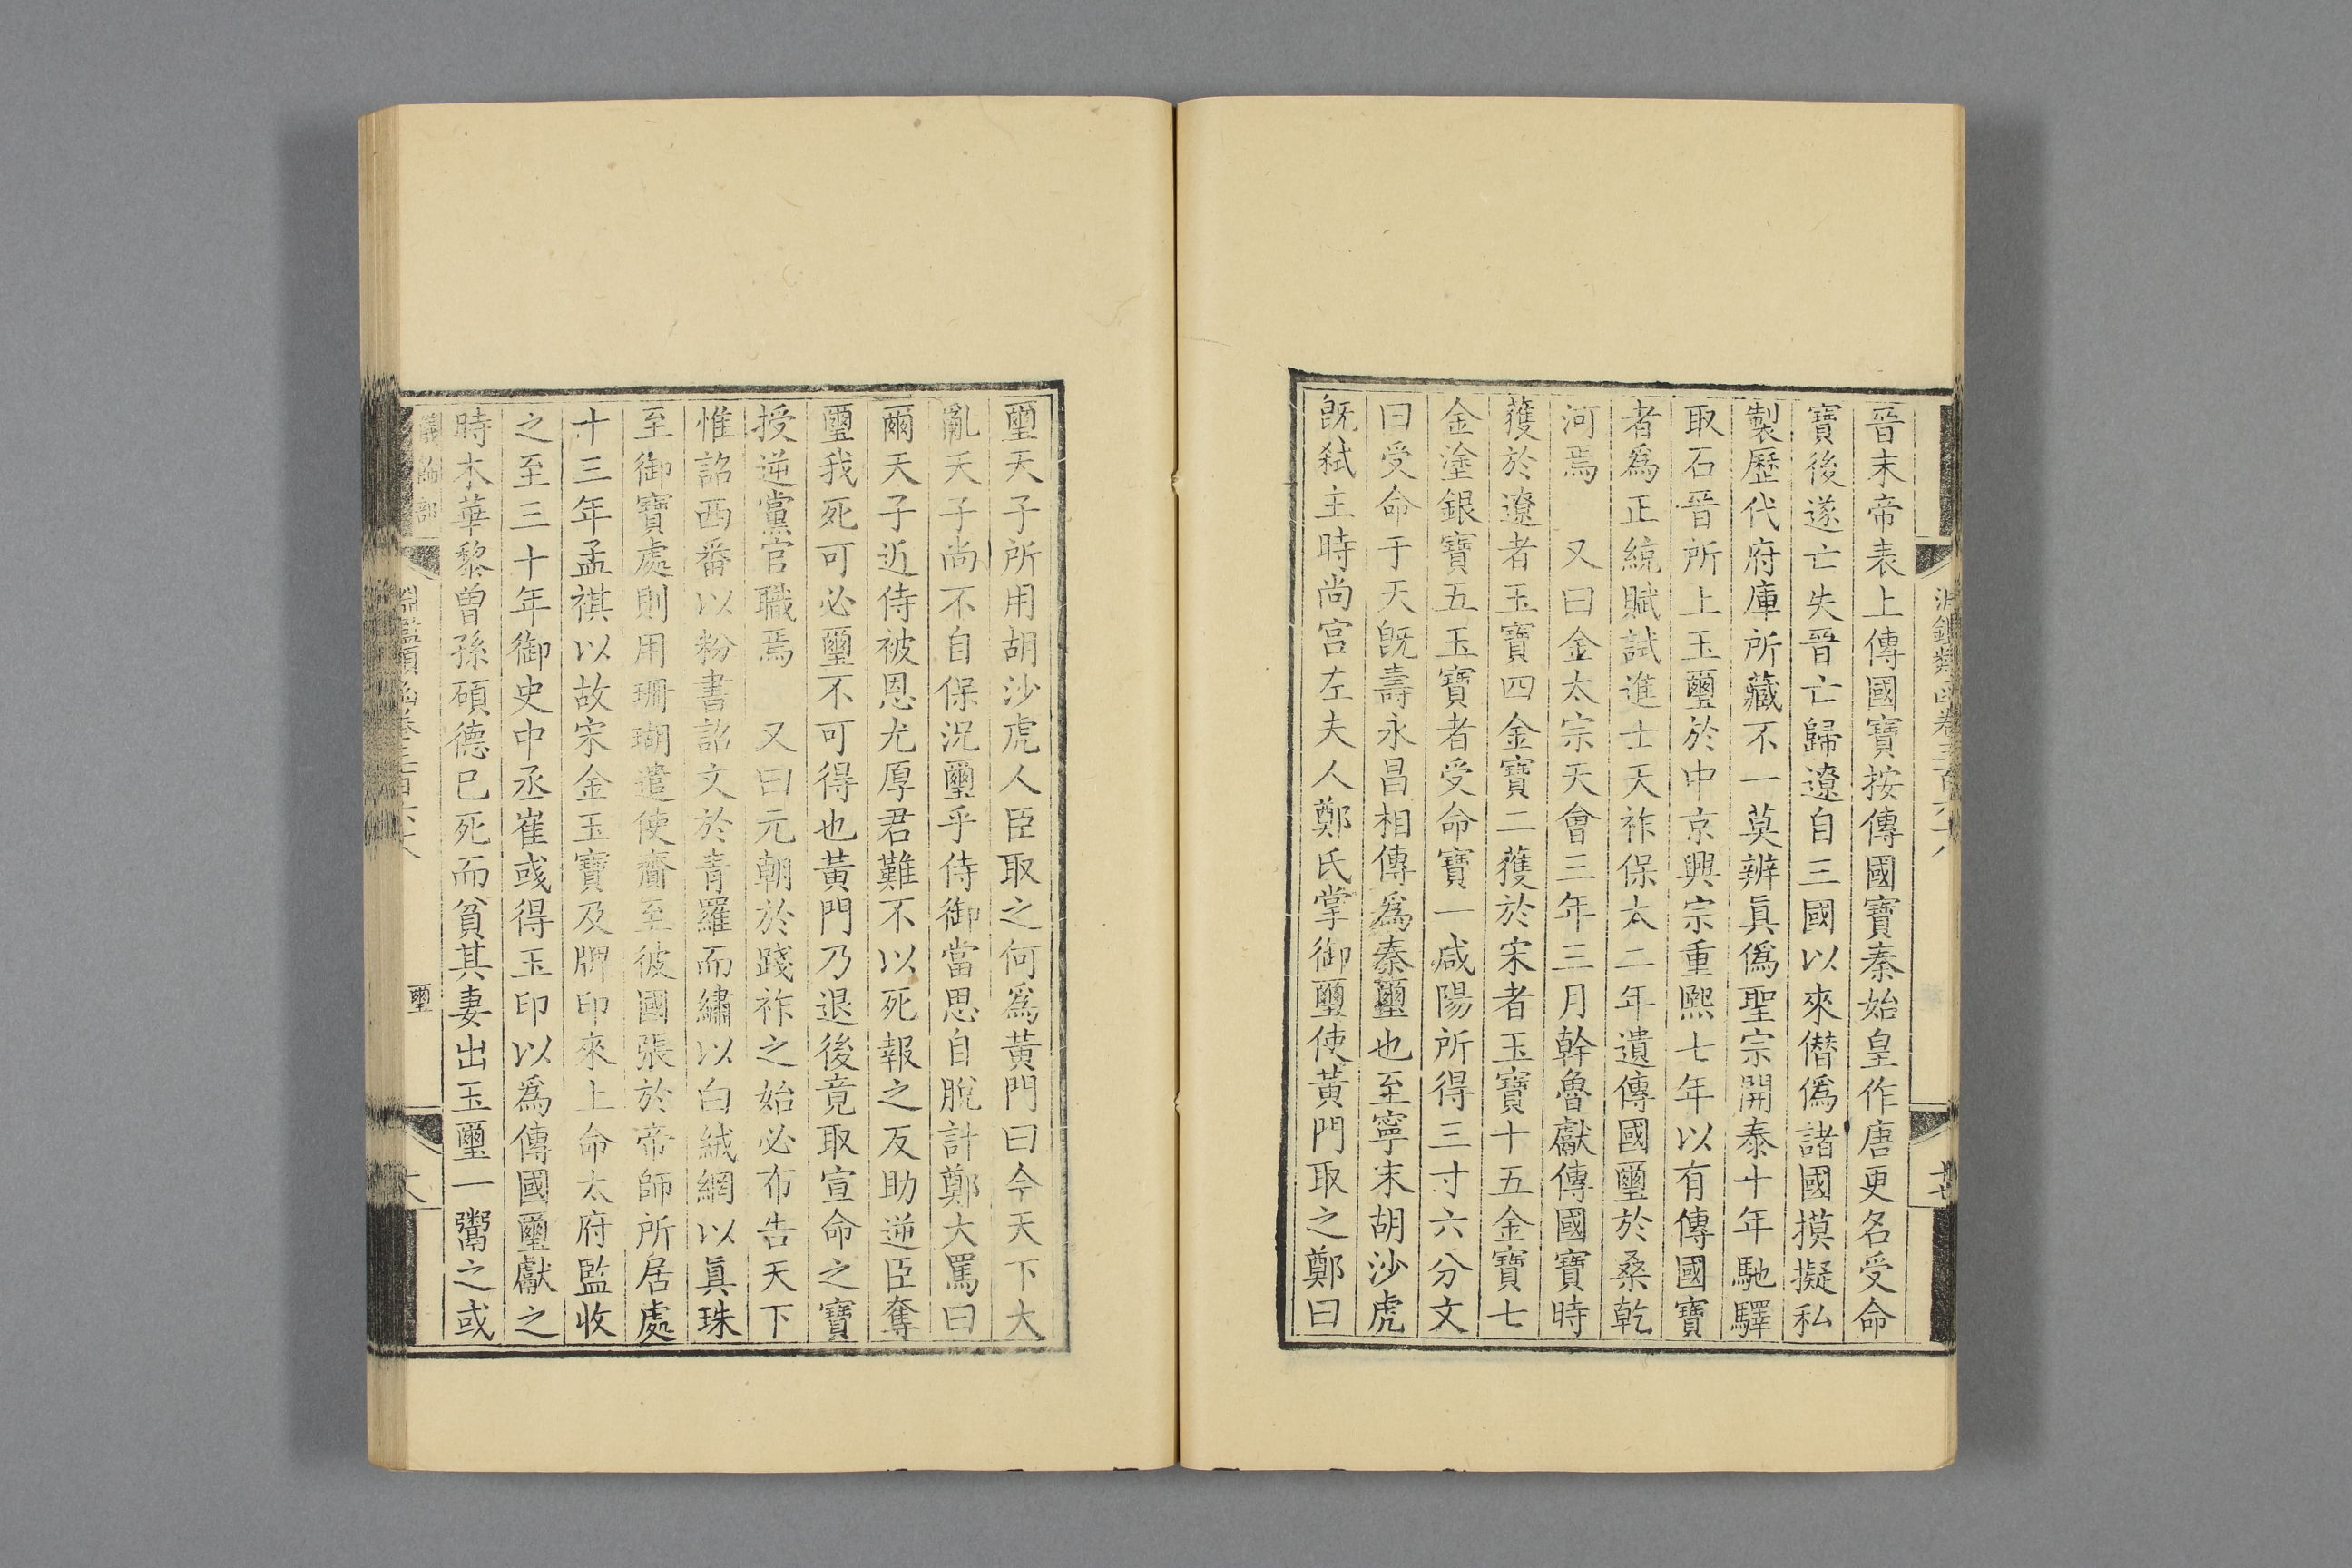 晉末帝表上傳國寶按傳國寶秦始皇作唐更名受命
寶後遂亡失晉亡歸遼自三國以來僭僞諸國摸擬私
製歷代府庫所藏不一莫辨眞僞聖宗開泰十年馳驛
取石晉所上玉璽於中京興宗重熙七年以有傳國寶
者爲正綂賦試進士天祚保太二年遺傳國璽於桑乾
河焉　又曰金太宗天會三年三月幹魯獻傳國寶時
獲於遼者玉寶四金寶二獲於宋者玉寶十五金寶七
金塗銀寶五玉寶者受命寶一咸陽所得三寸六分文
曰受命于天旣壽永昌相傳爲秦璽也至寧末胡沙虎
旣弑主時尚宮左夫人鄭氏掌御璽使黃門取之鄭曰
璽天子所用胡沙虎人臣取之何爲黃門曰今天下大
亂天子尚不自保況璽乎侍御當思自脫計鄭大罵曰
爾天子近侍被恩尤厚君難不以死報之反助逆臣奪
璽我死可必璽不可得也黃門乃退後竟取宣命之寶
授逆黨官職焉　又曰元朝於踐祚之始必布告天下
惟詔西番以粉書詔文於青羅而繡以白絨網以眞珠
至御寶處則用珊瑚遣使齎至彼國張於帝師所居處
十三年孟祺以故宋金玉寶及牌印來上命太府監收
之至三十年御史中丞崔彧得玉印以爲傳國璽獻之
時木華黎曾孫碩德已死而貧其妻出玉璽一鬻之或
儀飾部
璽